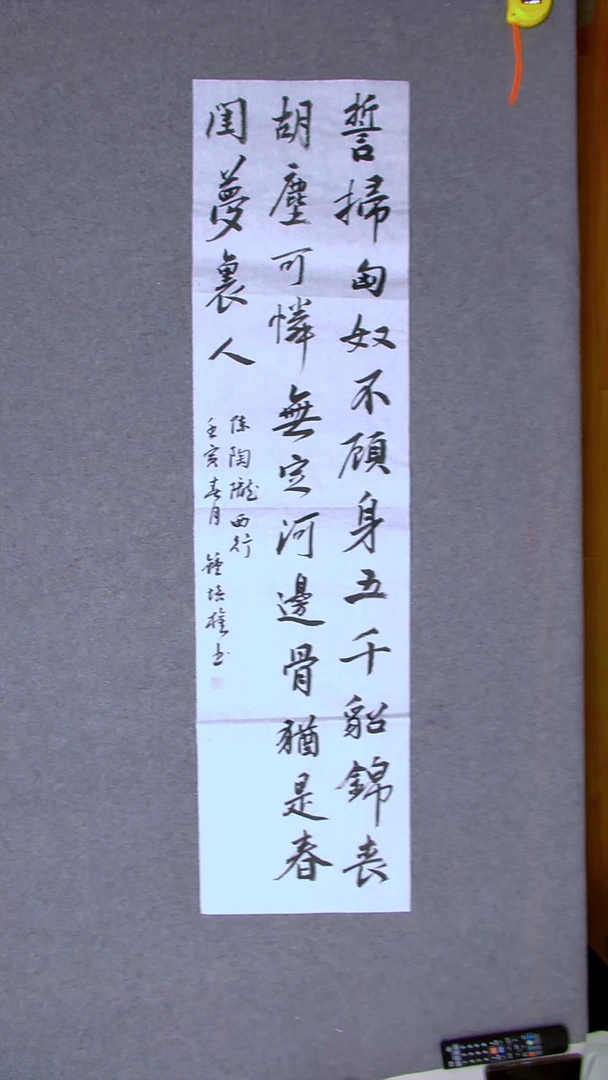 誓掃匈奴不顧身五千貂錦喪
胡塵可憐無定河邊骨猶是春
閨夢裏人
陳陶隴西行
壬寅春月 鍾培權书